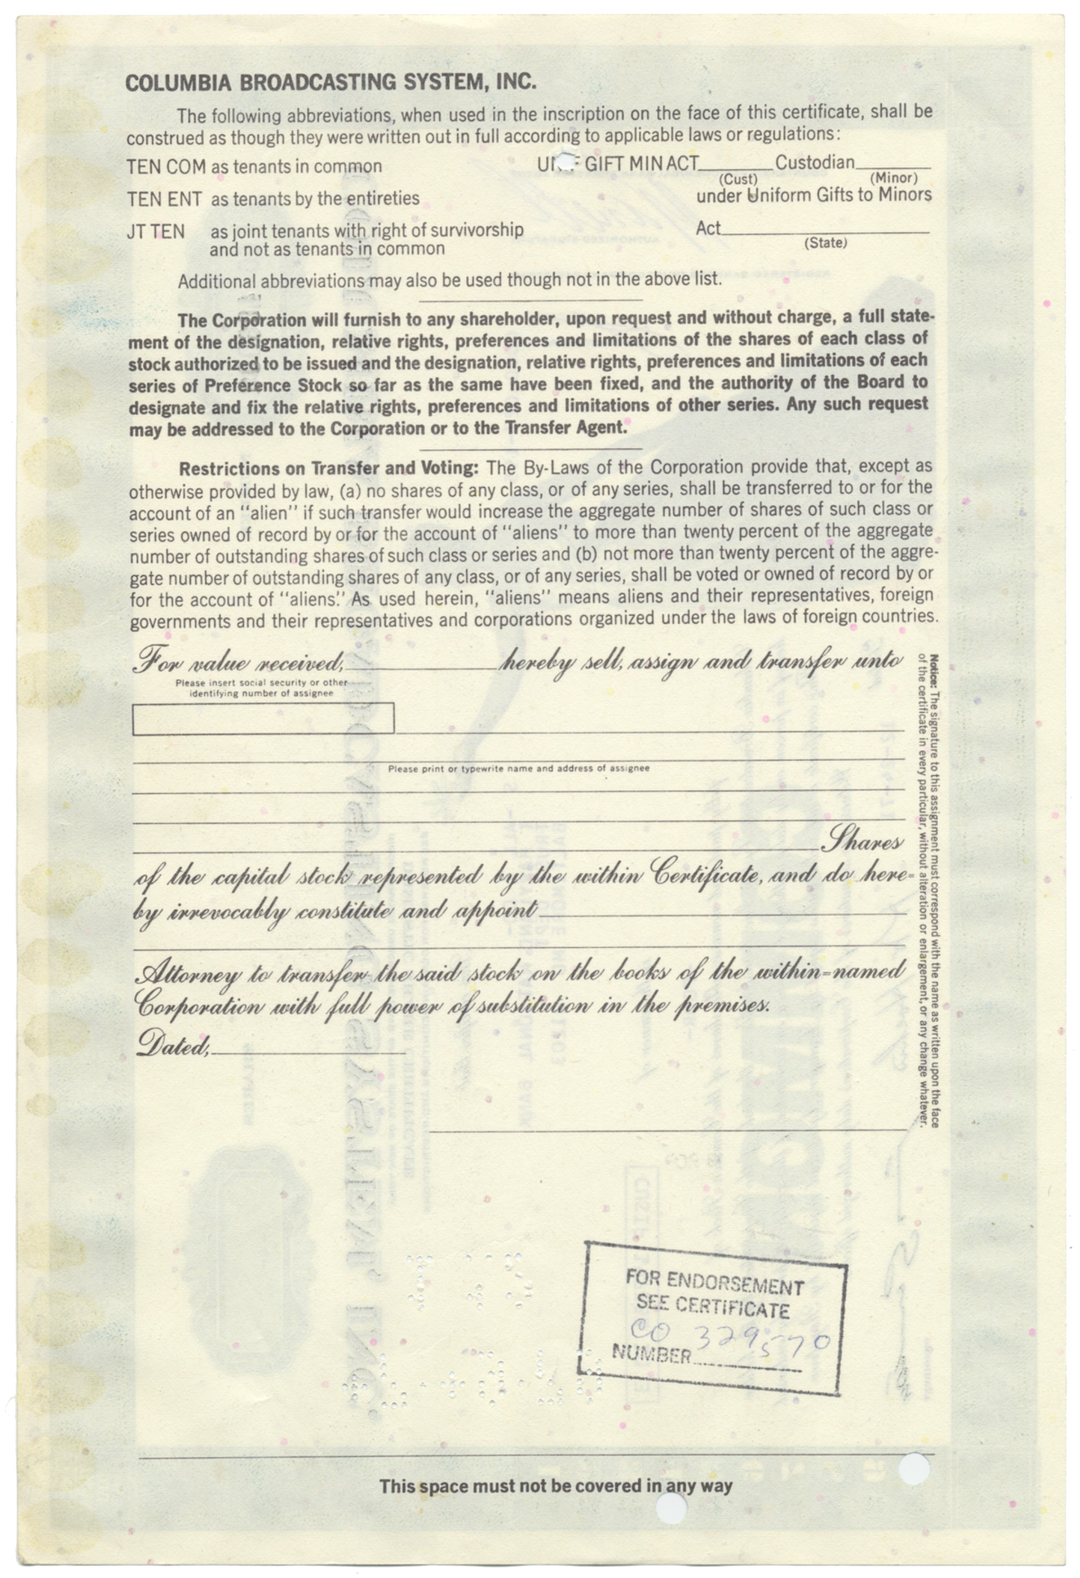 COLUMBIA BROADCASTING SYSTEM, INC.
The following abbreviations, when used in the inscription on the face of this certificate, shall be
construed as though they were written out in full according to applicable laws or regulations:
TEN COM as tenants in common
UNIF GIFT MIN ACT______Custodian______
(Cust) (Minor)
TEN ENT as tenants by the entireties
under Uniform Gifts to Minors
JT TEN as joint tenants with right of survivorship
and not as tenants in common
Act______
(State)
Additional abbreviations may also be used though not in the above list.
The Corporation will furnish to any shareholder, upon request and without charge, a full state-
ment of the designation, relative rights, preferences and limitations of the shares of each class of
stock authorized to be issued and the designation, relative rights, preferences and limitations of each
series of Preference Stock so far as the same have been fixed, and the authority of the Board to
designate and fix the relative rights, preferences and limitations of other series. Any such request
may be addressed to the Corporation or to the Transfer Agent.
Restrictions on Transfer and Voting: The By-Laws of the Corporation provide that, except as
otherwise provided by law, (a) no shares of any class, or of any series, shall be transferred to or for the
account of an "alien" if such transfer would increase the aggregate number of shares of such class or
series owned of record by or for the account of "aliens" to more than twenty percent of the aggregate
number of outstanding shares of such class or series and (b) not more than twenty percent of the aggre-
gate number of outstanding shares of any class, or of any series, shall be voted or owned of record by or
for the account of "aliens." As used herein, "aliens" means aliens and their representatives, foreign
governments and their representatives and corporations organized under the laws of foreign countries.
For value received,______hereby sell, assign and transfer unto
Please insert social security or other
identifying number of assignee
Please print or typewrite name and address of assignee
Shares
of the capital stock represented by the within Certificate, and do here-
by irrevocably constitute and appoint______
Attorney to transfer the said stock on the books of the within-named
Corporation with full power of substitution in the premises.
Dated,______
Notice: The signature to this assignment must correspond with the name as written upon the face
of the certificate in every particular, without alteration or enlargement, or any change whatever.
FOR ENDORSEMENT
SEE CERTIFICATE
CO 329570
NUMBER
This space must not be covered in any way